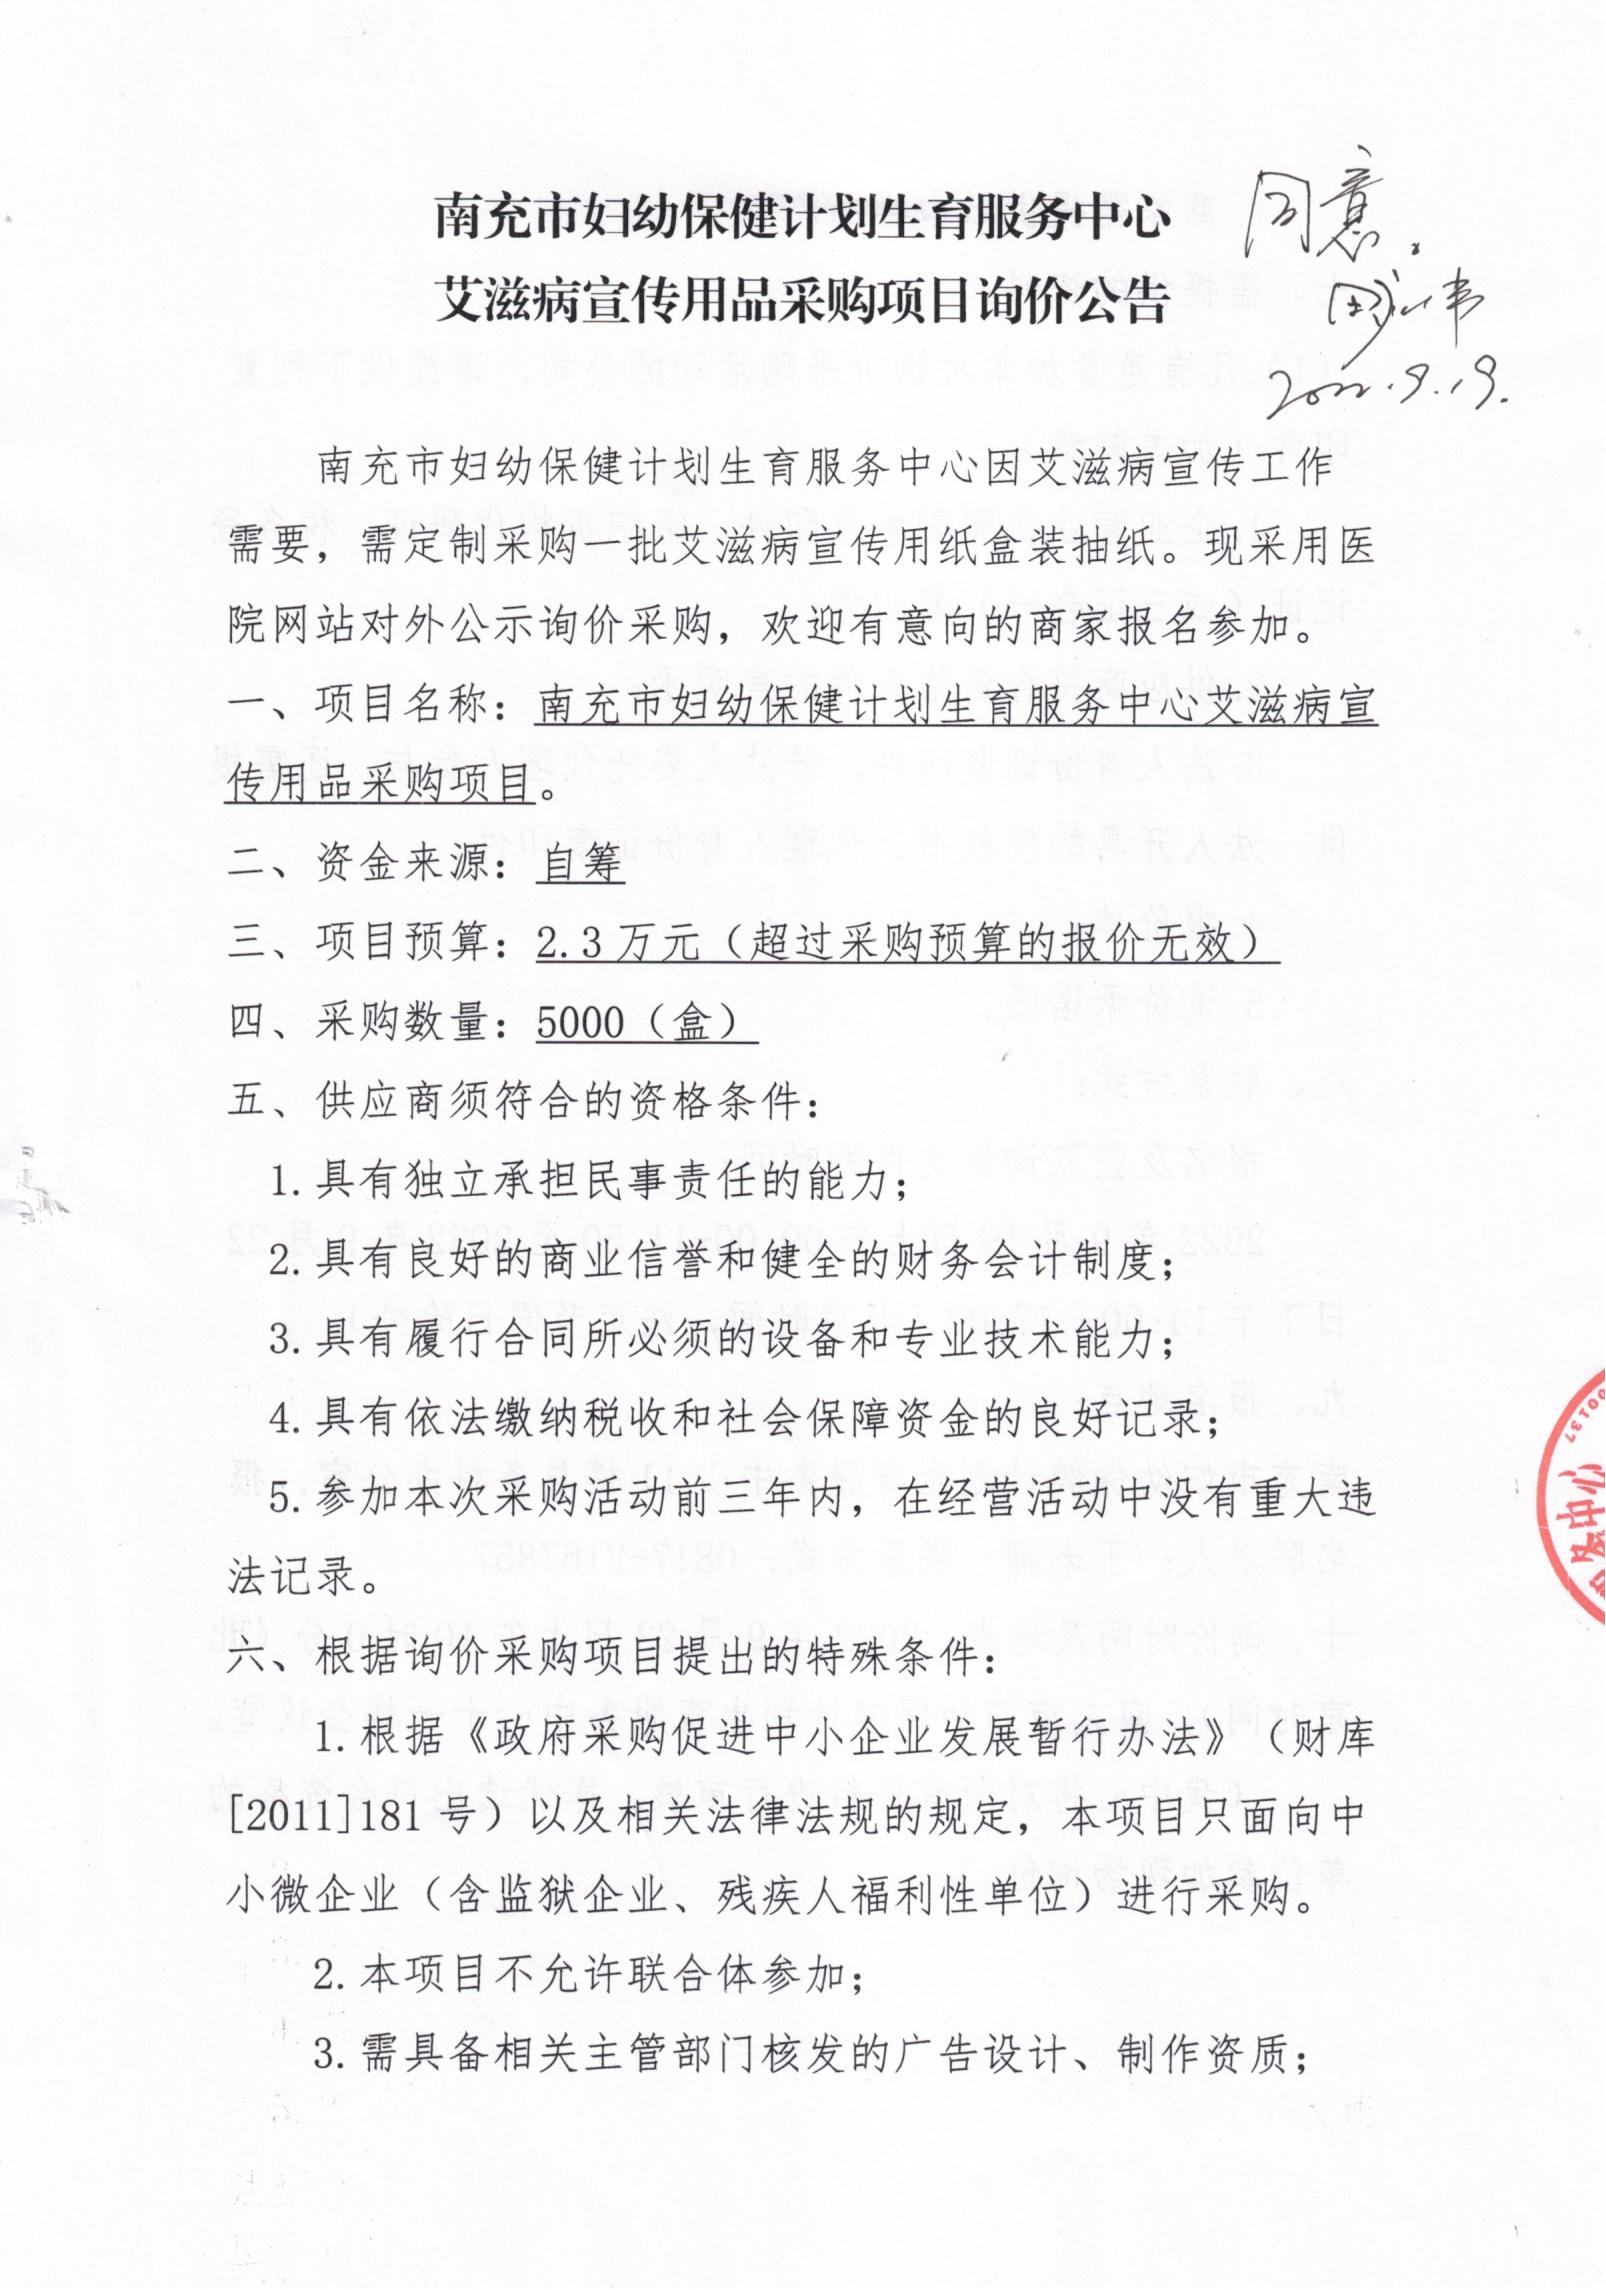 南充市妇幼保健计划生育服务中心
艾滋病宣传用品采购项目询价公告
同意。
2022.9.19.
南充市妇幼保健计划生育服务中心因艾滋病宣传工作
需要，需定制采购一批艾滋病宣传用纸盒装抽纸。现采用医
院网站对外公示询价采购，欢迎有意向的商家报名参加。
一、项目名称：南充市妇幼保健计划生育服务中心艾滋病宣
传用品采购项目。
二、资金来源：自筹
三、项目预算：2.3万元（超过采购预算的报价无效）
四、采购数量：5000（盒）
五、供应商须符合的资格条件：
1.具有独立承担民事责任的能力；
2.具有良好的商业信誉和健全的财务会计制度；
3.具有履行合同所必须的设备和专业技术能力；
4.具有依法缴纳税收和社会保障资金的良好记录；
5.参加本次采购活动前三年内，在经营活动中没有重大违
法记录。
六、根据询价采购项目提出的特殊条件：
1.根据《政府采购促进中小企业发展暂行办法》（财库
[2011]181号）以及相关法律法规的规定，本项目只面向中
小微企业（含监狱企业、残疾人福利性单位）进行采购。
2.本项目不允许联合体参加；
3.需具备相关主管部门核发的广告设计、制作资质；